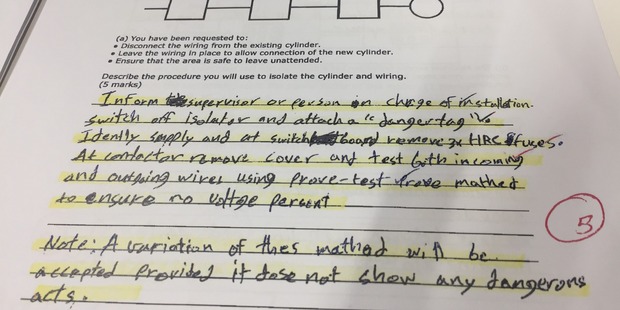 (a) You have been requested to:
• Disconnect the wiring from the existing cylinder.
• Leave the wiring in place to allow connection of the new cylinder.
• Ensure that the area is safe to leave unattended.
Describe the procedure you will use to isolate the cylinder and wiring.
(5 marks)
Inform supervisor or person in charge of installation.
switch off isolator and attach a "danger tag" to
Identify supply and at switchboard remove HRC fuses.
At contactor remove cover and test both incoming
and outgoing wires using prove-test-prove mathed
to ensure no voltge persent
Note: A variation of thes mathed will be
accepted Provided it dose not show any dangerons
acts.